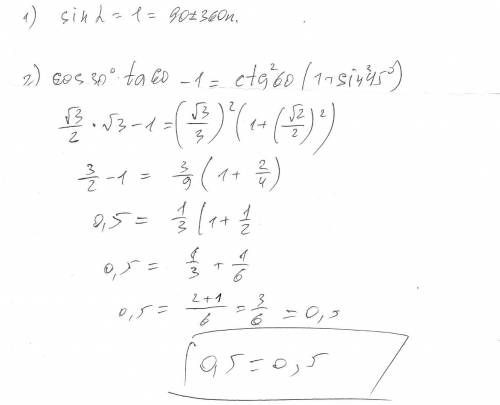 1) sin α = 1 = 90 ± 360n.
2) cos 30° · tg 60 - 1 = ctg² 60 (1 + sin² 45°)
√3/2 · √3 - 1 = (√3/3)² (1 + (√2/2)²)
3/2 - 1 = 3/9 (1 + 2/4)
0,5 = 1/3 (1 + 1/2
0,5 = 1/3 + 1/6
0,5 = 2+1/6 = 3/6 = 0,5
0,5 = 0,5